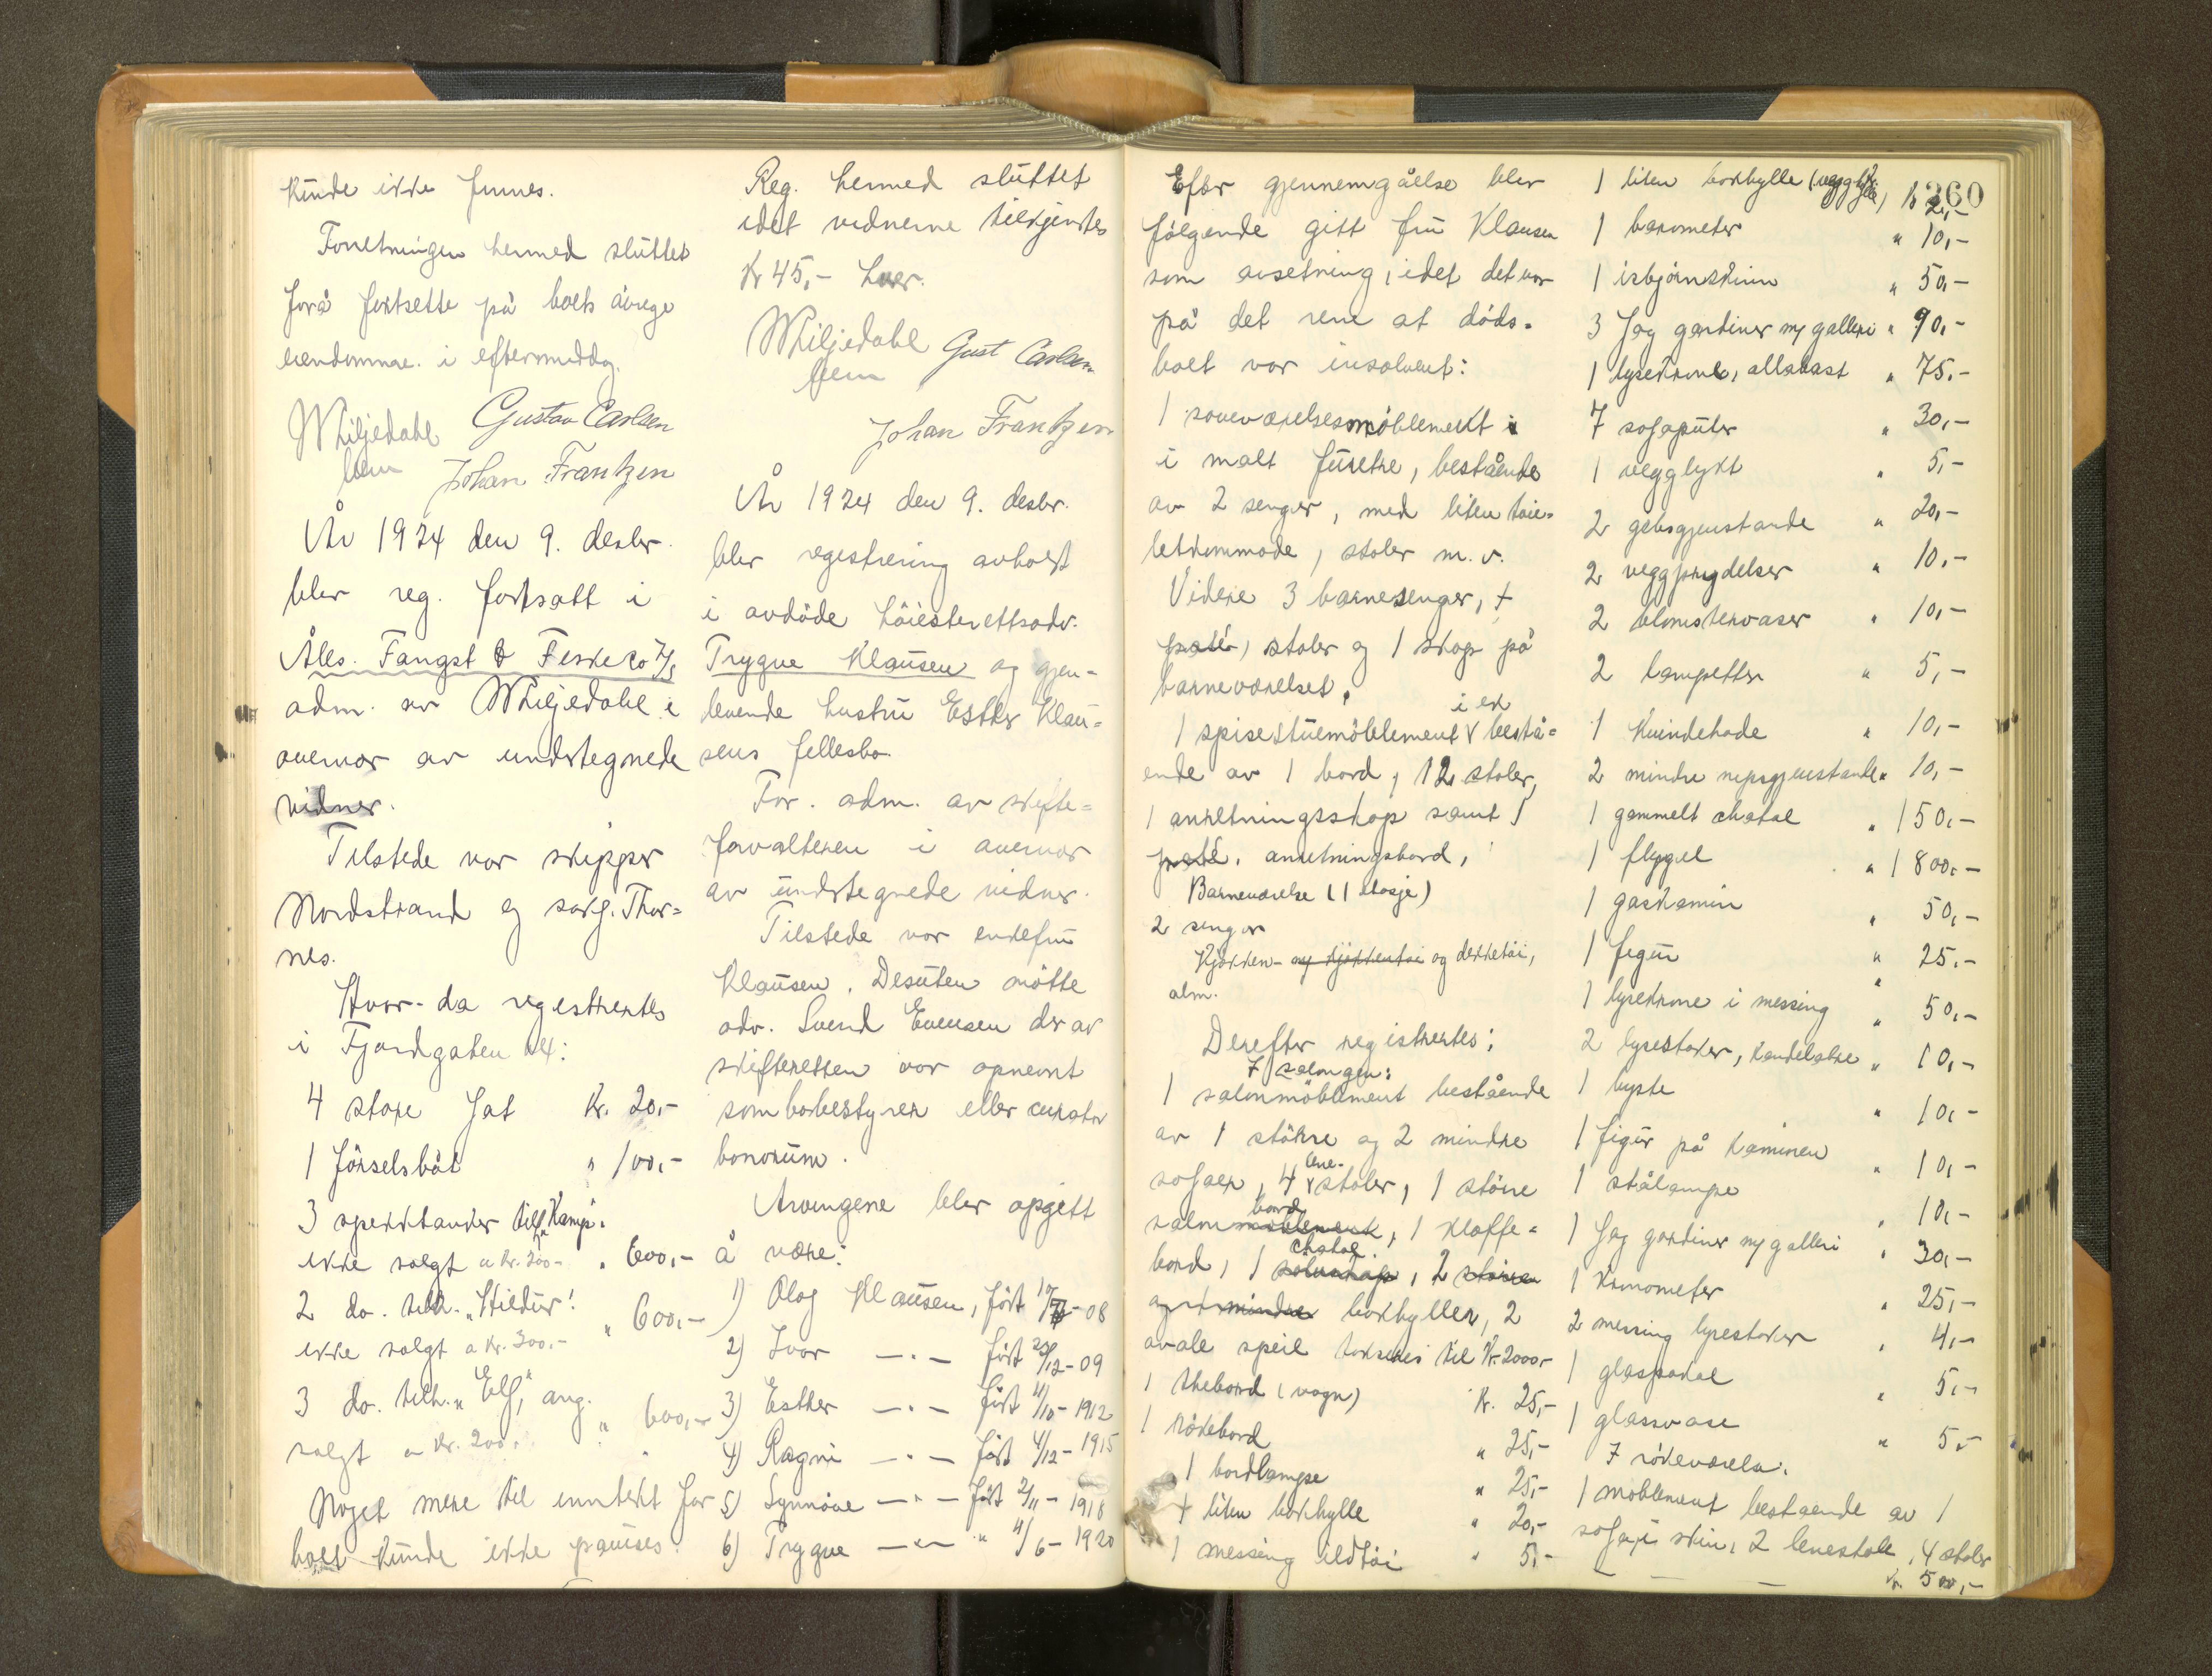 kunde ikke finnes.
Forretningen hermed sluttet
forå fortsette på boets øvrige
eiendommer i eftermiddag.
WLiljedahl Gustav Carlsen
fem Johan Frantzen
År 1924 den 9. desbr.
blev reg. fortsatt i
Åles. Fangst & Fiske co A/S
adm. av WLiljedahl i
overvær av undertegnede
vidner.
Tilstede var skipper
Nordstrand og sakf. Thor=
nes.
Hvor da registrertes
i Fjordgaten 24:
4 store fat Kr. 20,-
1 förselsbåt " 100,-
3 spekktanker tilh. "Kamp".
ikke solgt a kr. 200- " 600,-
2 do. tilh. "Hildur"!
ikke solgt a kr. 300.- " 600,-
3 do. tilh. "Elf", ang.
solgt a kr. 200,- " 600,-
Noget mere til inntekt for
boet kunde ikke påvises.
Reg. hermed sluttet
idet vidnerne tilkjentes
Kr 45,- hver.
WLiljedahl Gust Carlsen
fem
Johan Frantzen
År 1924 den 9. desbr.
blev registrering avholdt
i avdöde höiesterettsadv.
Trygve Klausen og gjen=
levende hustru Esther Klau=
sens fellesbo.
For. adm. av skifte=
forvalteren i overvær
av undertegnede vidner.
Tilstede var enkefru
Klausen. Desuten mötte
adv. Svend Evensen der av
skifteretten var opnevnt
som bobestyrer eller curator
bonorum.
Arvingene blev opgitt
å være:
1) Olag Klausen, födt 17/7-08
2) Ivar -"- födt 28/12-09
3) Esther -"- födt 4/10-1912
4) Ragni -"- födt 4/12-1915
5) Synnöve -"- födt 2/11-1918
6) Trygve -"- " 4/6-1920
260
Efter gjennemgåelse blev
fölgende gitt fru Klausen
som avsetning, idet det var
på det rene at döds=
boet var insolvent:
1 soveværelsesmöblement i
i malt furetre, bestående
av 2 senger, med liten toie=
letkommode, stoler m.v.
Videre 3 barnesenger, +
puté, stoler og 1 skap på
barneværelset.
1 spisestuemöblement i ek bestå=
ende av 1 bord, 12 stoler,
1 anretningsskap samt 1
puté. anretningsbord,
Barneværelse (1 etasje)
2 senger
Kjökken- og kjökkentöi og dekketöi,
alm.
Derefter registrertes:
I salongen:
1 salonmöblement bestående
av 1 större og 2 mindre
sofaer, 4 lene-stoler, 1 störe
salonmöblement bord, 1 kaffe=
bord, 1 chatol, 2 större
og 1 mindre bokhyller, 2
ovale speil takseres til Kr. 2000-
1 thebord (vogn) Kr. 25,-
1 rökebord " 25,-
1 bordlampe " 25,-
1 liten bokhylle " 20,-
1 messing ildtöi " 5,-
1 liten bokhylle (vegghylle) kr 2,-
1 barometer " 10,-
1 isbjörnskinn " 50,-
3 fag gardiner m/ galleri " 90,-
1 lysekrone, allabast " 75,-
7 sofaputer " 30,-
1 vegglykt " 5,-
2 gibsgjenstande " 20,-
2 veggprydelser " 10,-
2 blomstervaser " 10,-
2 lampetter " 5,-
1 kvindehode " 10,-
2 mindre nipsgjenstande " 10,-
1 gammelt chatol " 150,-
1 flygel " 1800,-
1 gaskamin " 50,-
1 figur " 25,-
1 lysekrone i messing " 50,-
2 lysestaker, kandelabre " 10,-
1 byste " 10,-
1 figur på kaminen " 10,-
1 stålampe " 10,-
1 fag gardiner m/ galleri " 30,-
1 kronometer " 25,-
2 messing lysestaker " 4,-
1 glaspokal " 5,-
1 glassvase " 5,-
I rökeværelse:
1 möblement bestående av 1
sofa i skin, 2 lenestole, 4 stoler
kr. 500,-